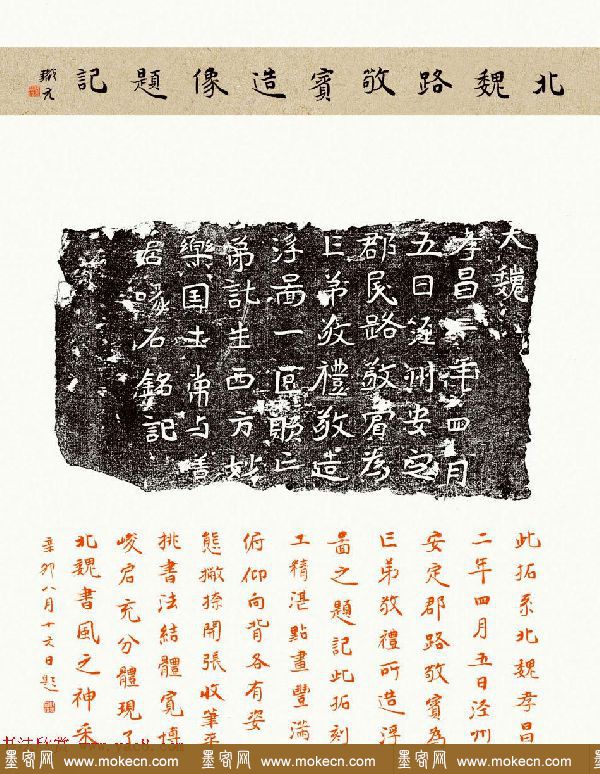 北魏路敬賓造像題記
大魏
孝昌二年四月
五日涇州安定
郡民路敬賓為
亡弟敬禮敬造
浮啚一區願亡
弟託生西方妙
樂国土常与善
居 石銘記
此拓系北魏孝昌
二年四月五日涇州
安定郡路敬賓為
亡弟敬禮所造浮
啚之題記此拓刻
工精湛點畫豐滿
俯仰向背各有姿
態撇捺開張收筆平
挑書法結體寬博
峻宕充分體現了
北魏書風之神采
辛卯八月十六日題
书法欣赏 www.yac8.com
墨客网 www.mokecn.com 墨客网 www.mokecn.com 墨客网 www.mokecn.com